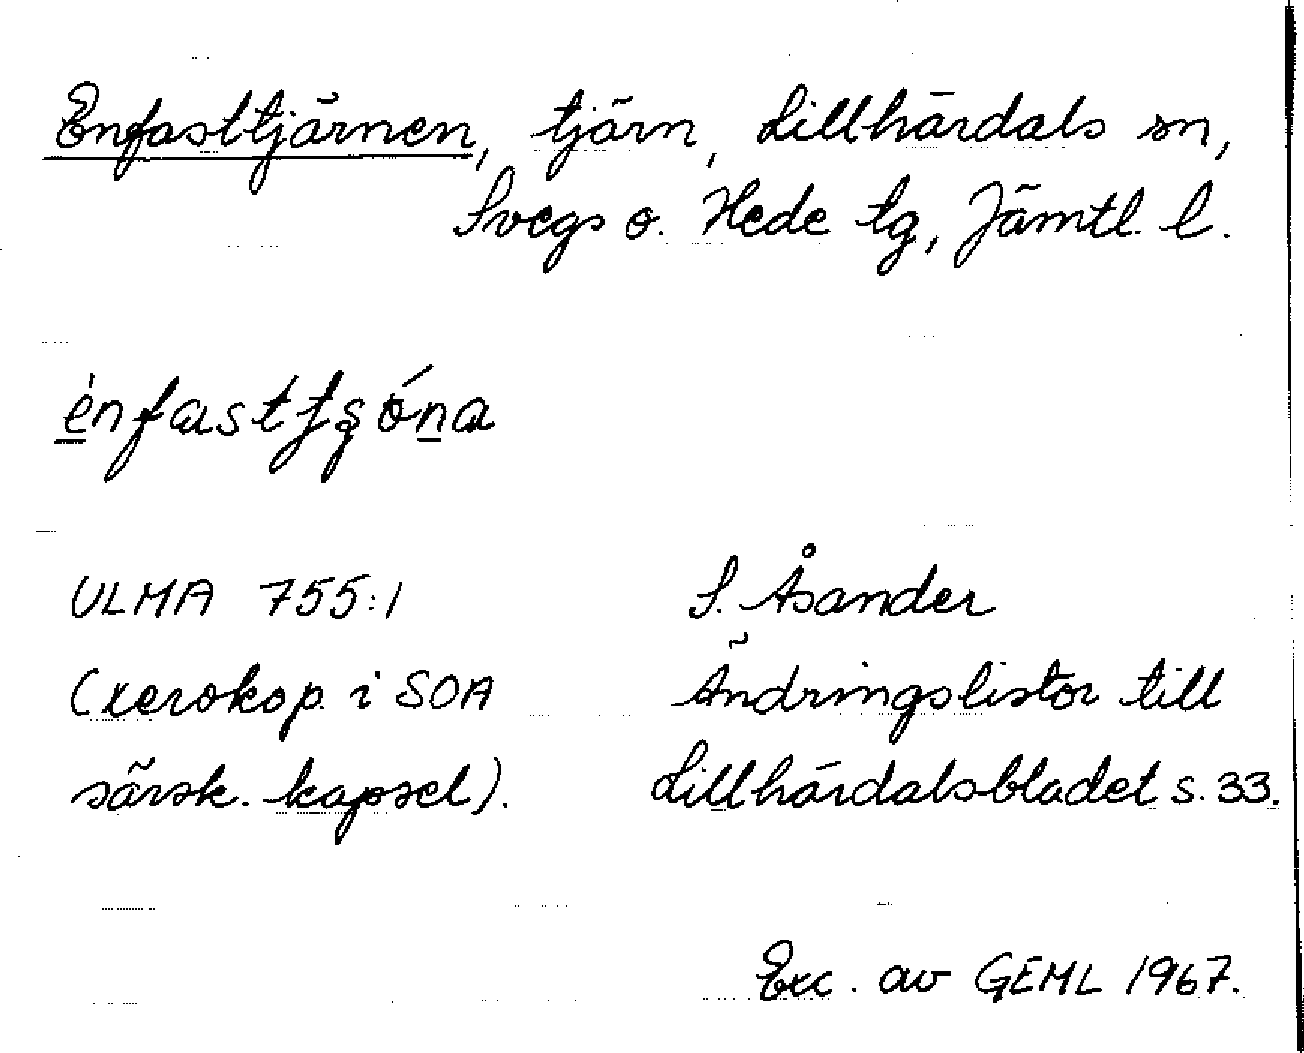 Enfasttjärnen, tjärn, Lillhärdals sn,
Svegs o. Hede tg, Jämtl. l.
ULMA 755:1
S. Åsander
(xerokop. i SOA
Ändringslistor till
särsk. kapsel).
Lillhärdalsbladet s. 33.
Exc. av GEML 1967.